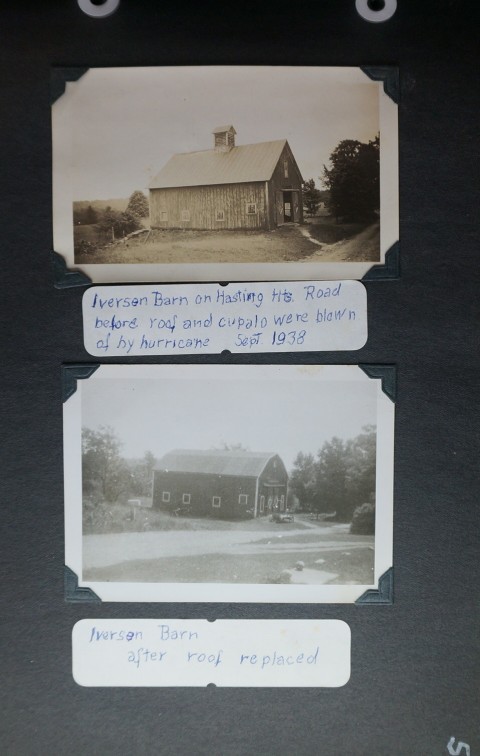 Iversen Barn on Hasting Hts. Road
before roof and cupalo were blown
of by hurricane Sept. 1938
Iversen Barn
after roof replaced
5